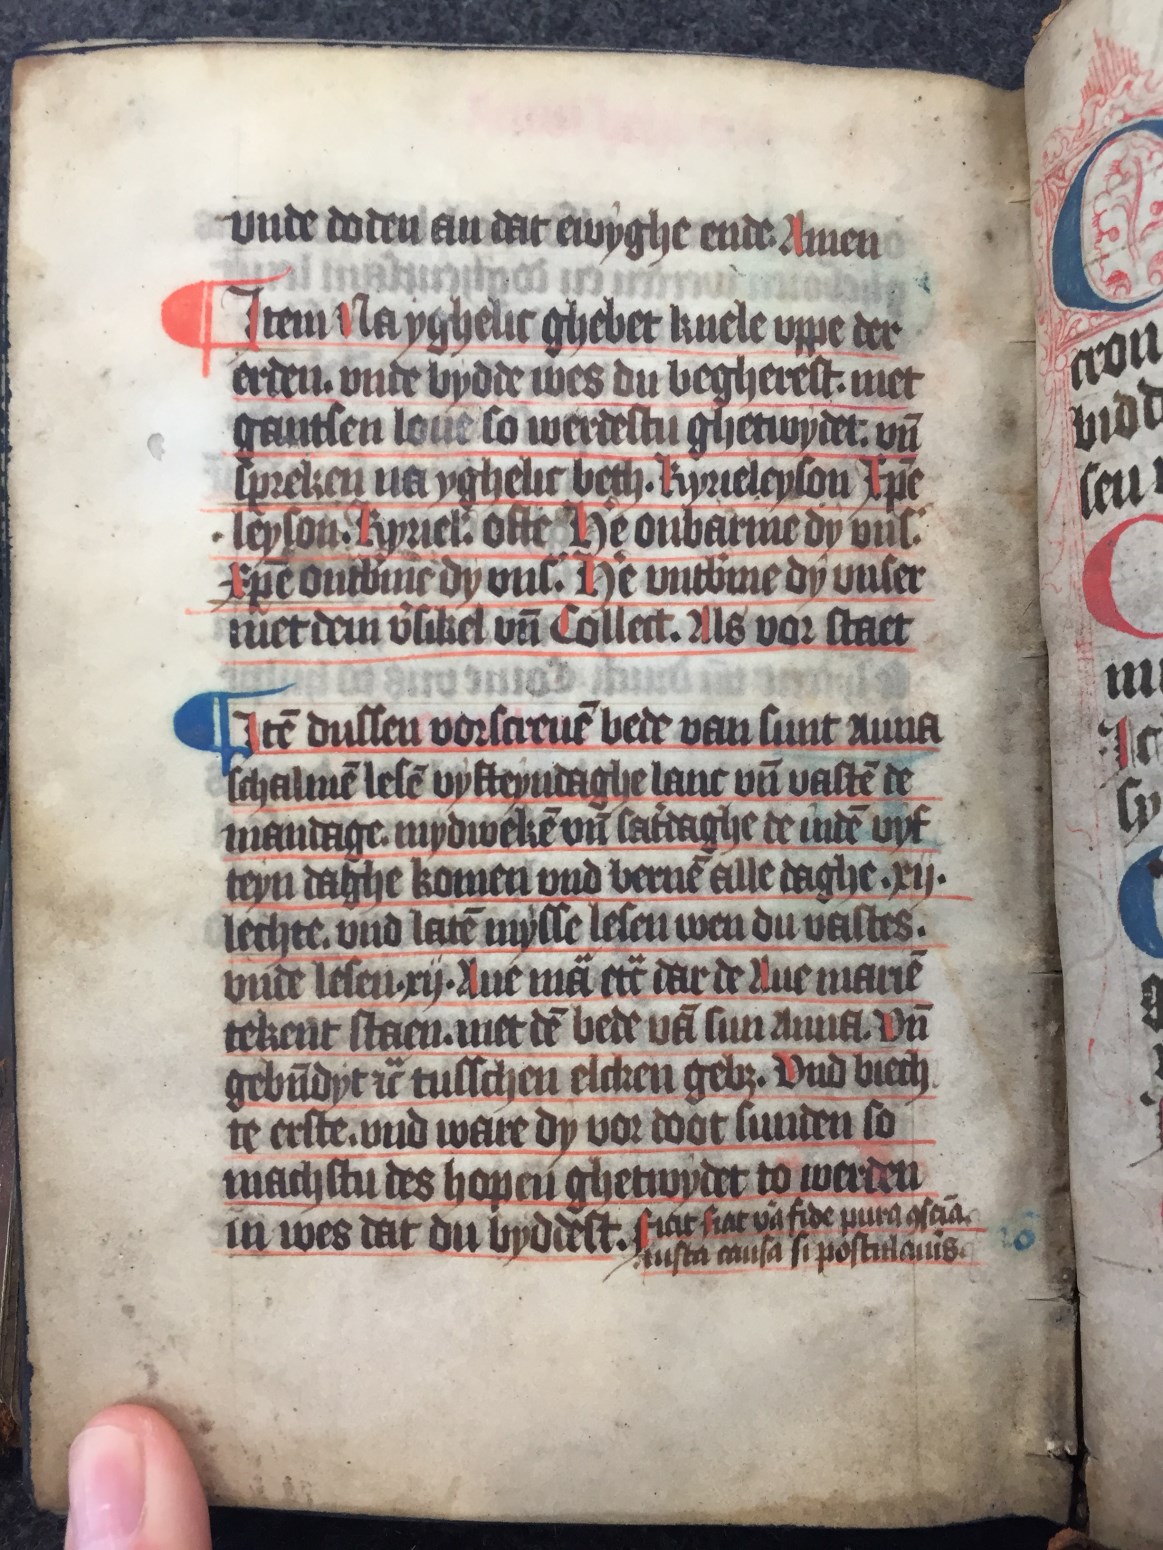 vnde doden an dat ewyghe ende. Amen
Item Na yghelic ghebet knele vppe der
erden. vnde bydde wes du begherest. met
gantsen loue so werdestu ghetwydet. vn̄
spreken na yghelic beth. Kyrieleyson Xp̄e
leyson. Kyriel. ofte He onbarme dy vns.
Xp̄e ontb̄me dy vns. He vntb̄me dy vnser
met dem v̄sikel vn̄ Collect. Als vor staet
Itē dussen vorscreuē bede van sunt Anna
schalmē lesē vyfteyndaghe lanc vn̄ vastē de
mandage. mydwekē vn̄ sat̄daghe de indē vyf
teyn daghe komen vnd bernē alle daghe .xij.
lechte. vnd latē mysse lesen wen du vastes.
vnde lesen .xij. Aue mā etc̄ dar de Aue mariē
tekent staen. met dē bede vā sun Anna. Vn̄
gebn̄dyt ic̄ tusschen elcken gebꝫ. Vnd biech
te erste. vnd ware dy vor doot sunden so
machstu des hopen ghetwydet to werden
in wes dat du byddest. fiat vā fide pura
iusta causa si postulaueris
cron
vnd
sen